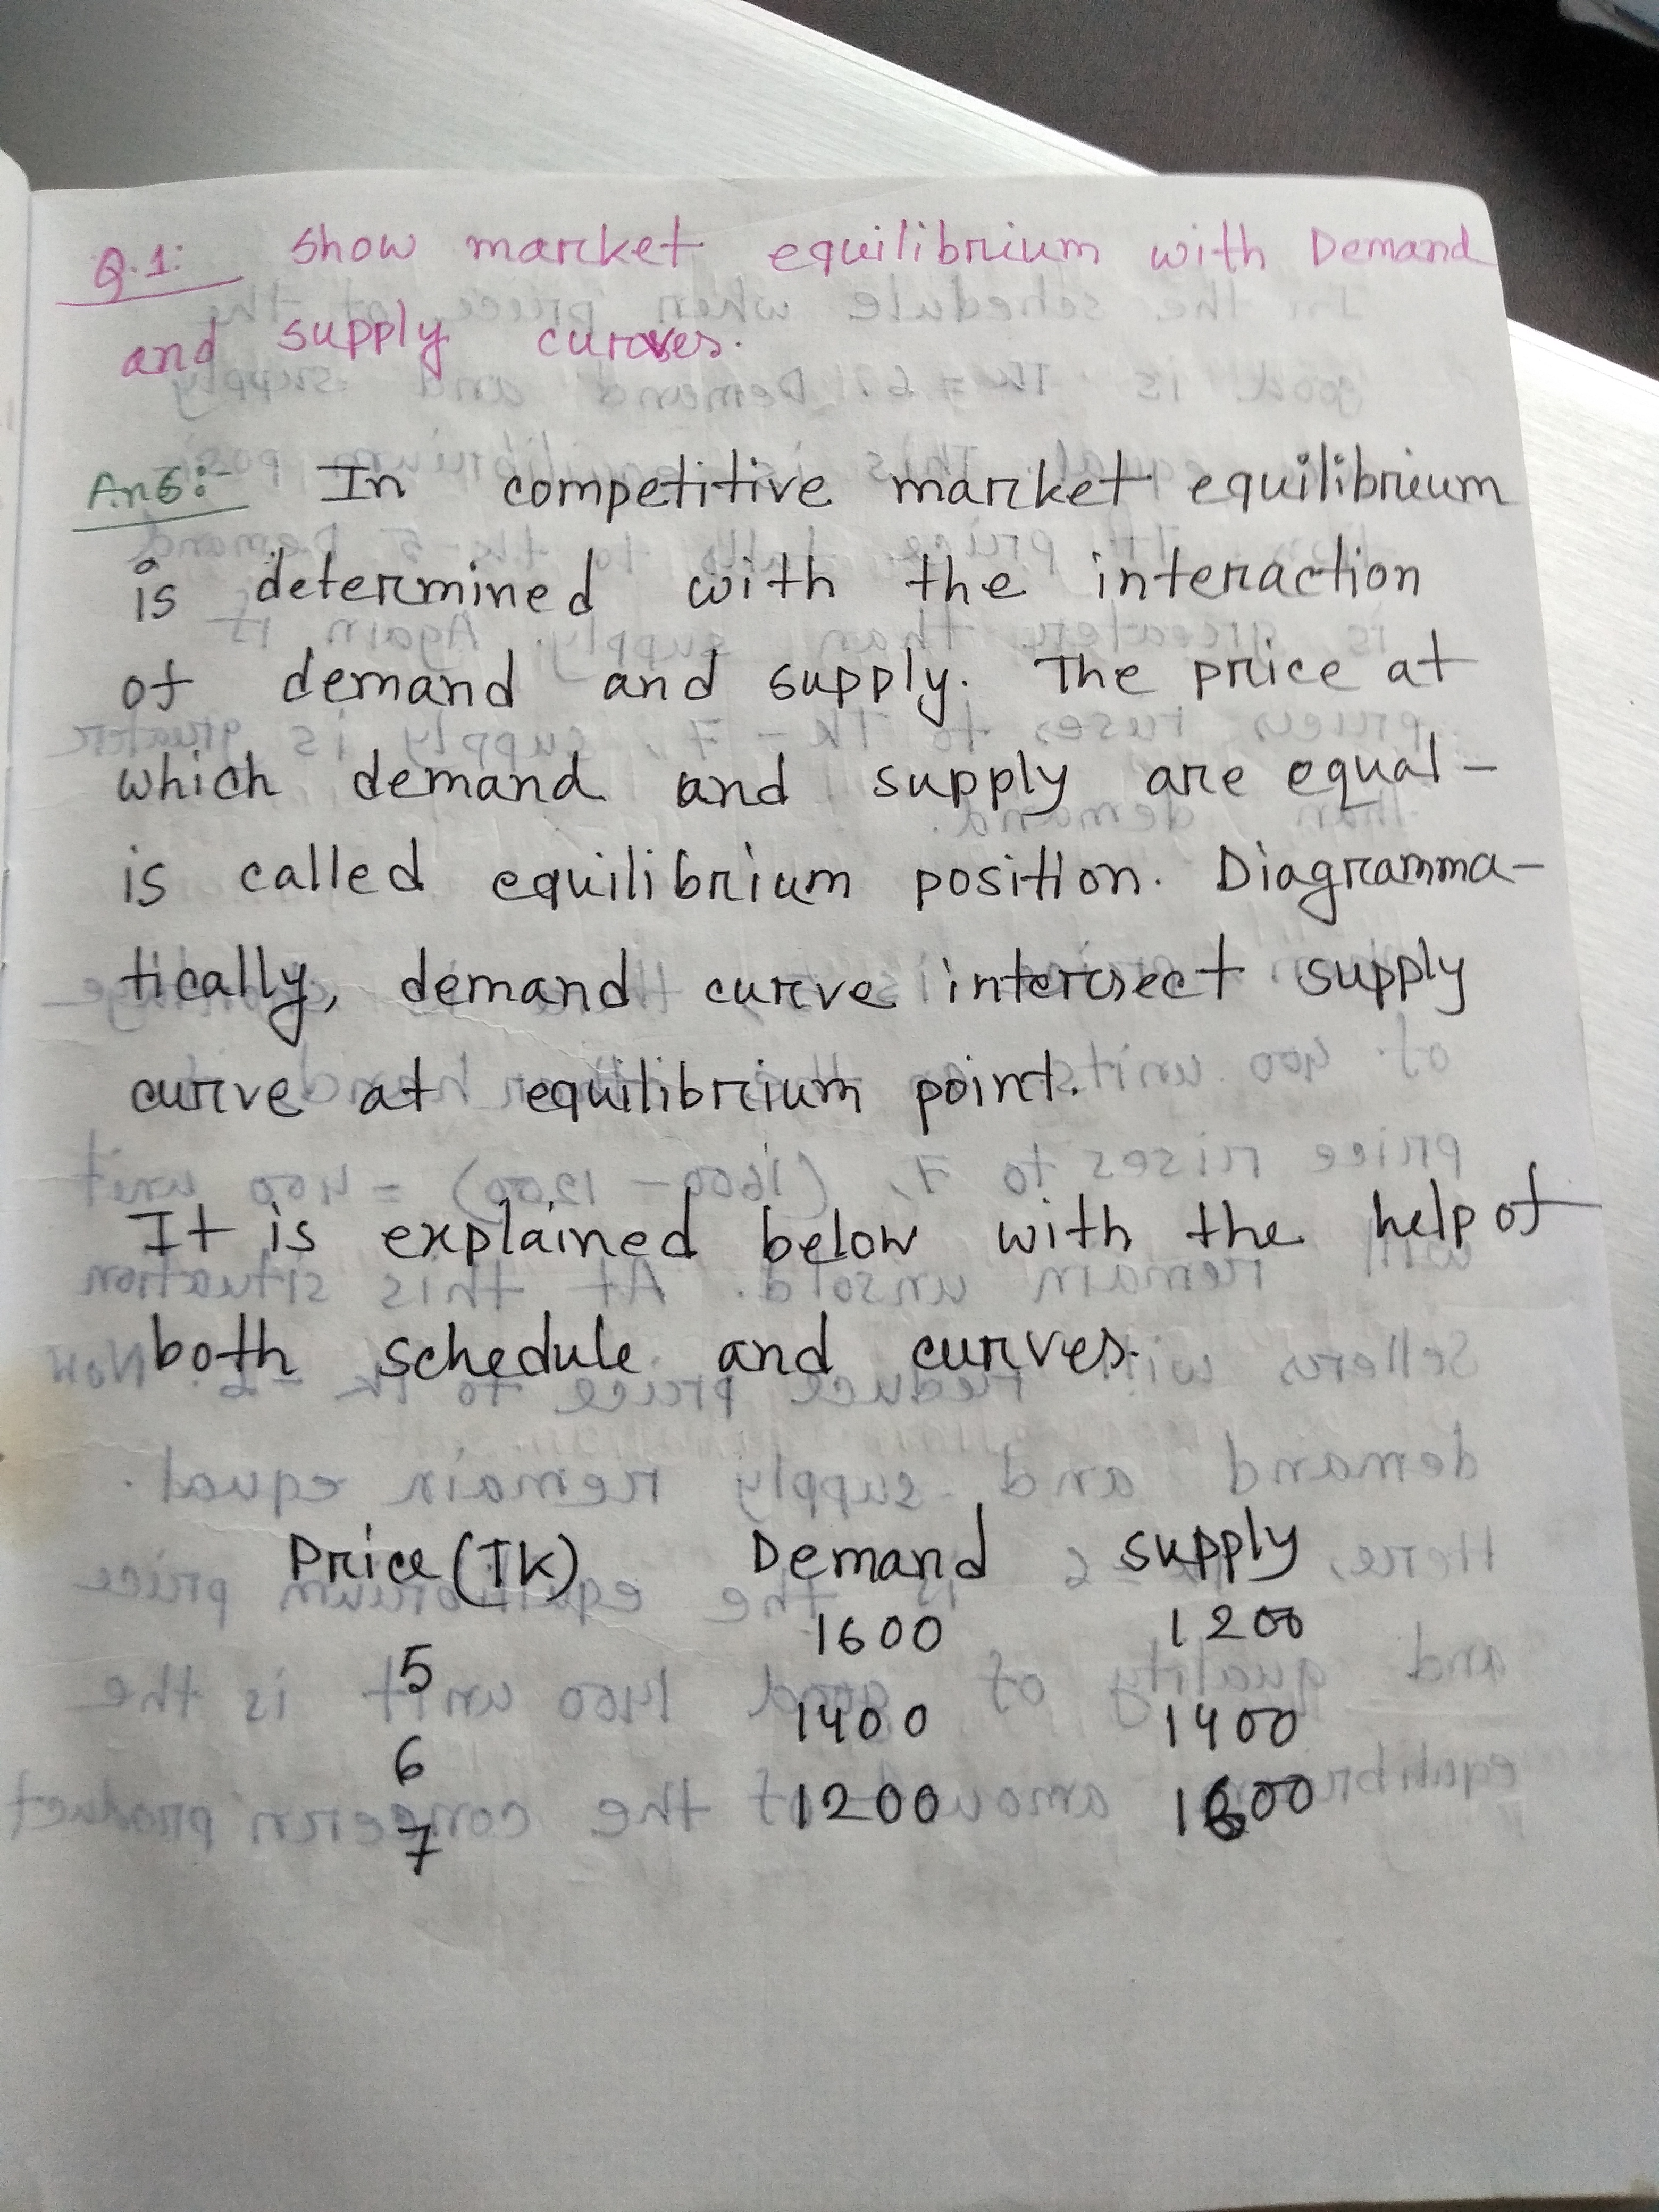 Q.1: Show market equilibrium with Demand
and supply curves.
Ans:- In competitive market equilibrium
is determined with the interaction
of demand and supply. The price at
which demand and supply are equal -
is called equilibrium position. Diagramma-
tically, demand curve intersect supply
curve at equilibrium point.
It is explained below with the help of
both schedule and curves.
Price (TK) Demand supply
5 1600 1200
6 1400 1400
7 1200 1600